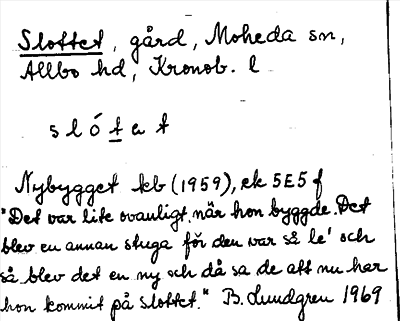 Slottet, gård, Moheda sn,
Allbo hd, Kronob. l
slótet
Nybygget kb (1959), ek 5E5f
"Det var lite ovanligt när hon byggde. Det
blev en annan stuga för den var så le' och
så blev det en ny och då sa de att nu har
hon kommit på slottet." B. Lundgren 1969